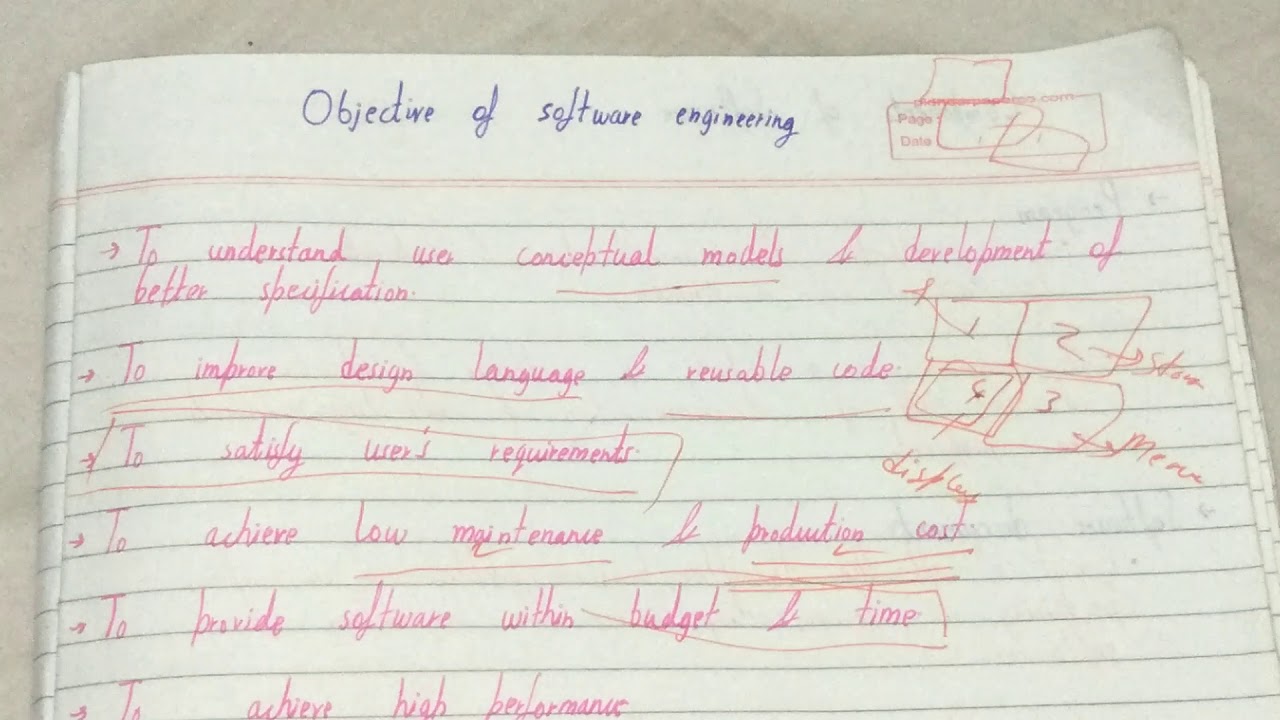 Objective of software engineering
Page:
Date
→ To understand user conceptual models & development of
better specification.
→ To improve design language & reusable code.
→ To satisfy user's requirements.
→ To achieve low maintenance & production cost
→ To provide software within budget & time.
→ To achieve high performance
1 2
4 3
display